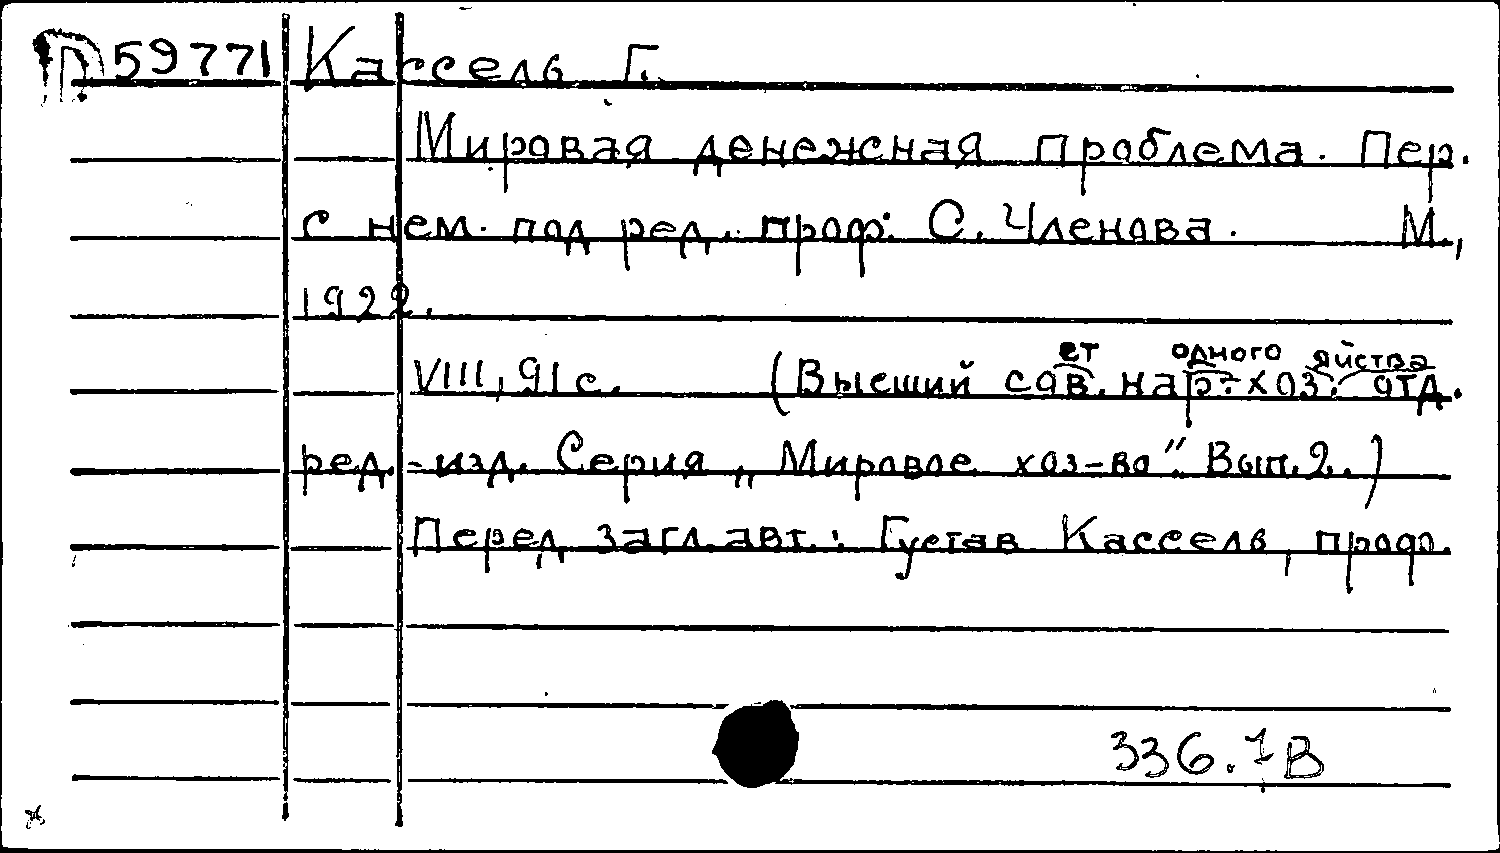 П 59771 Кассель Г.
Мировая денежная проблема. Пер.
с нем. под ред. проф. С. Членова. М.,
1922.
VIII, 91 с. (Высший совет народного хозяйства отд.
ред.-изд. Серия „Мировое хоз-во". Вып. 2.)
Перед загл. авт.: Густав Кассель, проф.
336.1В